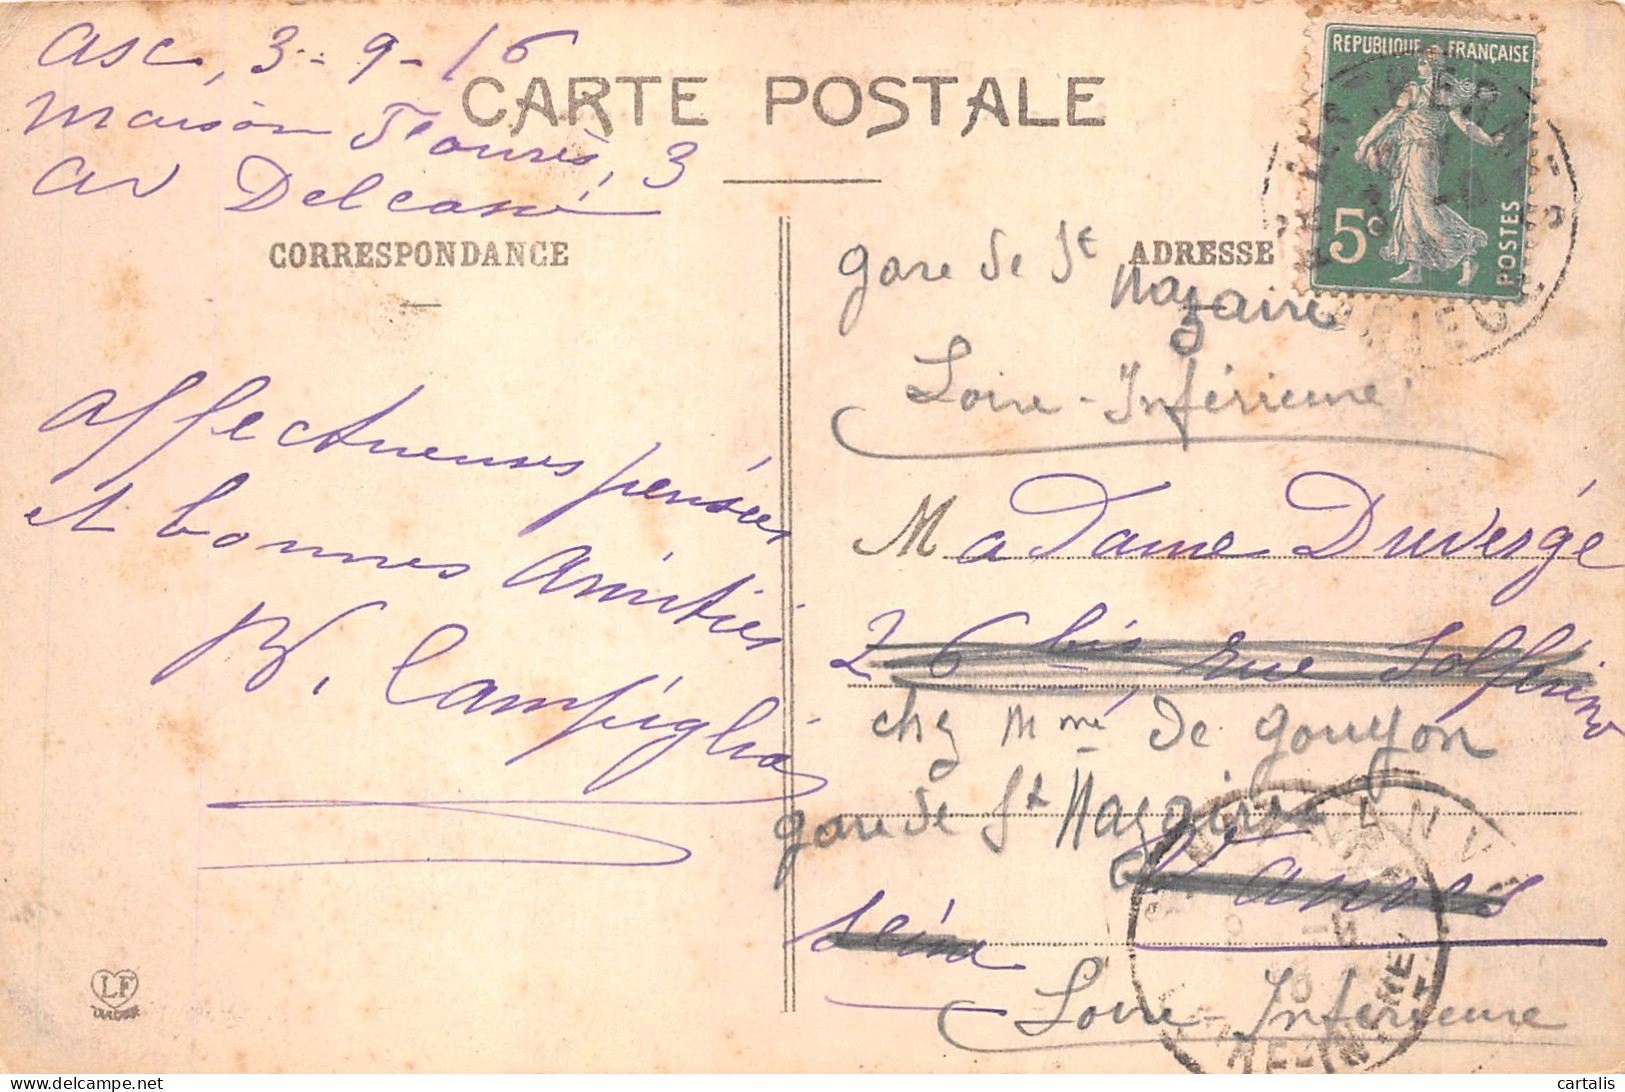 Asc, 3-9-16
Maison
av Delcassé, 3
CARTE POSTALE
CORRESPONDANCE
ADRESSE
REPUBLIQUE FRANÇAISE
5c
POSTES
ARIEGE
affectueuses pensées
et bonnes amitiés
Campiglia
gare de St
Nazaire
Loire-Inférieure
Madame Duvergé
26 bis, rue Solférino
chez Mme de Gouyon
gare de St Nazaire
Vannes
Loire-Inférieure
LF
cartalis
delcampe.net